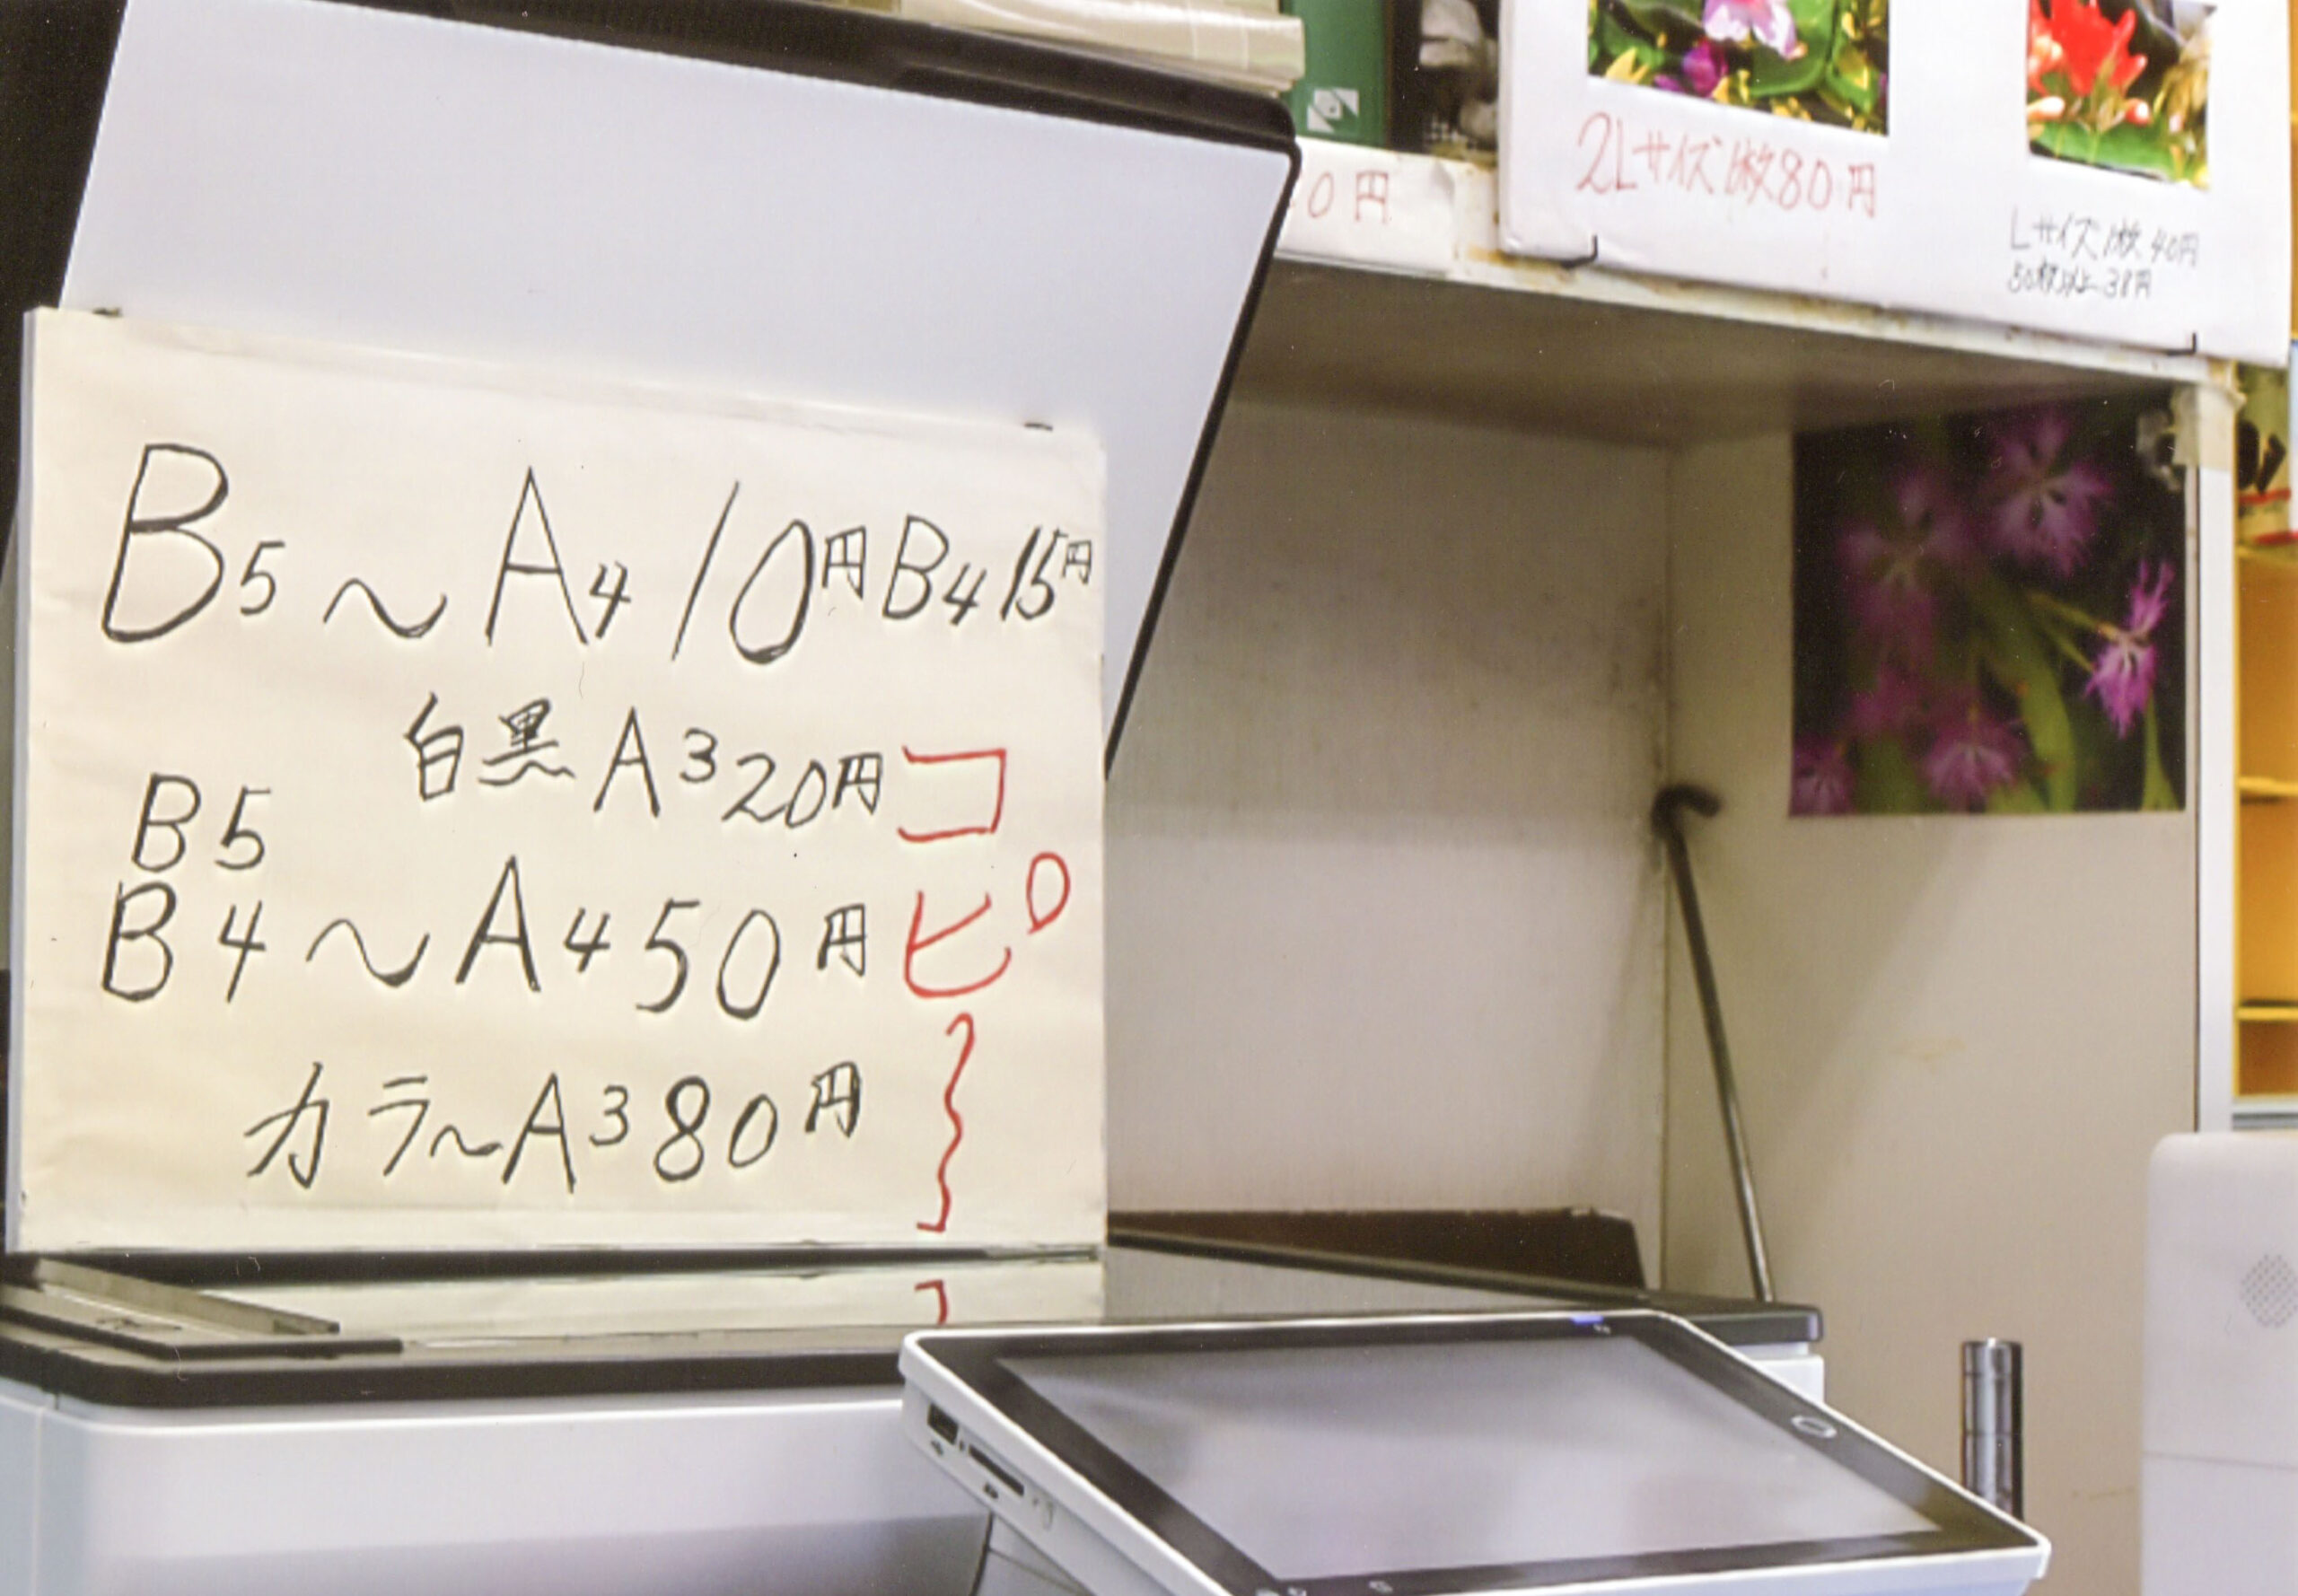 B5〜A4 10円 B4 15円
白黒 A3 20円
B5
B4〜A4 50円
カラ〜A3 80円
コピー
0円
2Lサイズ1枚80円
Lサイズ1枚40円
50枚以上38円